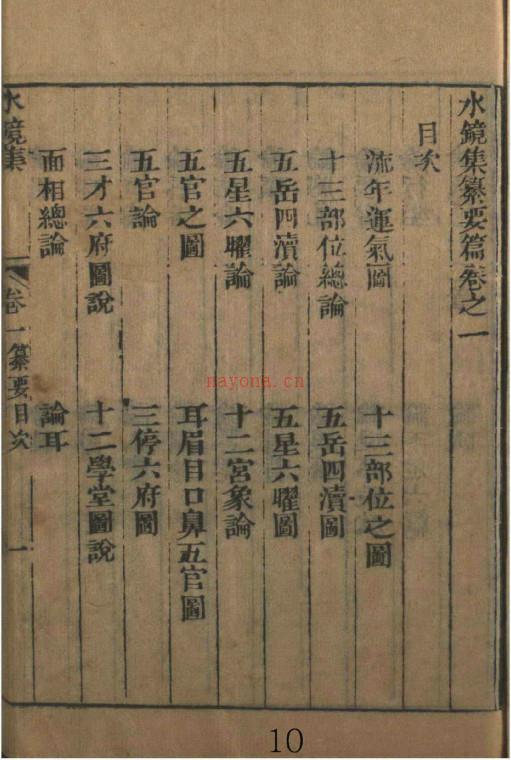 水鏡集纂要篇卷之一
目次
流年運氣圖 十三部位之圖
十三部位總論 五岳四瀆圖
五岳四瀆論 五星六曜圖
五星六曜論 十二宮象論
五官之圖 耳眉目口鼻五官圖
五官論 三停六府圖
三才六府圖說 十二學堂圖說
面相總論 論耳
水鏡集 卷一纂要目次 一
nayona.cn
10